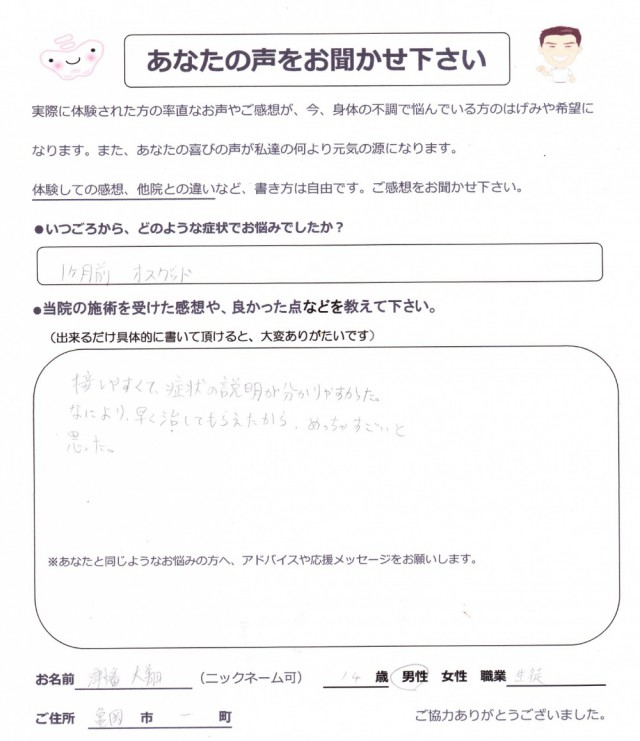 あなたの声をお聞かせ下さい
実際に体験された方の率直なお声やご感想が、今、身体の不調で悩んでいる方のはげみや希望に
なります。また、あなたの喜びの声が私達の何より元気の源になります。
体験しての感想、他院との違いなど、書き方は自由です。ご感想をお聞かせ下さい。
●いつごろから、どのような症状でお悩みでしたか？
1ヶ月前 オスグッド
●当院の施術を受けた感想や、良かった点などを教えて下さい。
（出来るだけ具体的に書いて頂けると、大変ありがたいです）
接しやすくて、症状の説明が分かりやすかった。
なにより、早く治してもらえたから、めっちゃすごいと
思った。
※あなたと同じようなお悩みの方へ、アドバイスや応援メッセージをお願いします。
お名前 大翔 （ニックネーム可） 14 歳 男性 女性 職業 生徒
ご住所 亀岡 市 町 ご協力ありがとうございました。